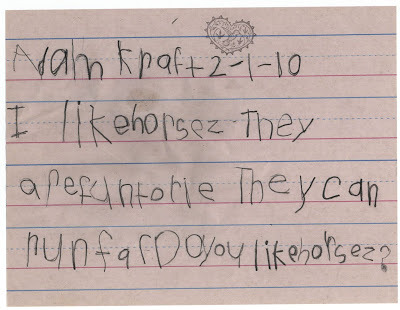 Adam Kraft 2-1-10
I like horsez They
are fun to rie They can
run far Do you like horsez?